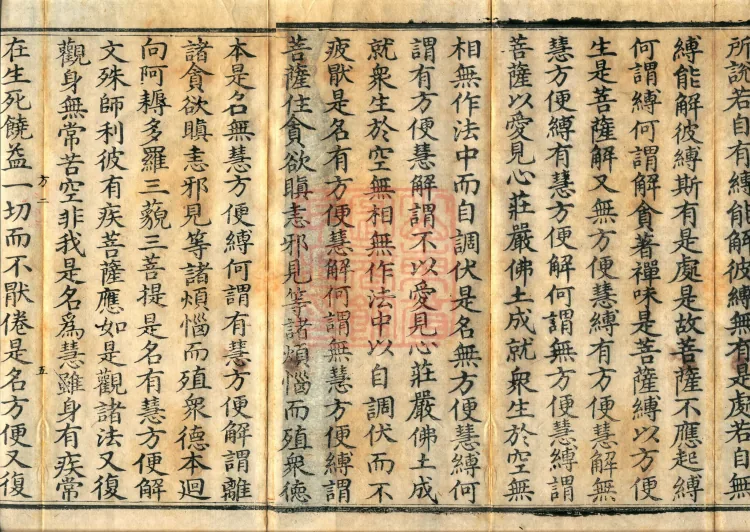 所說若自有縛能解彼縛無有是處若自無
縛能解彼縛斯有是處是故菩薩不應起縛
何謂縛何謂解貪著禪味是菩薩縛以方便
生是菩薩解又無方便慧縛有方便慧解無
慧方便縛有慧方便解何謂無方便慧縛謂
菩薩以愛見心莊嚴佛土成就衆生於空無
相無作法中而自調伏是名無方便慧縛何
謂有方便慧解謂不以愛見心莊嚴佛土成
就衆生於空無相無作法中以自調伏而不
疲厭是名有方便慧解何謂無慧方便縛謂
菩薩住貪欲瞋恚邪見等諸煩惱而殖衆德
本是名無慧方便縛何謂有慧方便解謂離
諸貪欲瞋恚邪見等諸煩惱而殖衆德本迴
向阿耨多羅三藐三菩提是名有慧方便解
文殊師利彼有疾菩薩應如是觀諸法又復
觀身無常苦空非我是名爲慧雖身有疾常
方二 五
在生死饒益一切而不厭倦是名方便又復